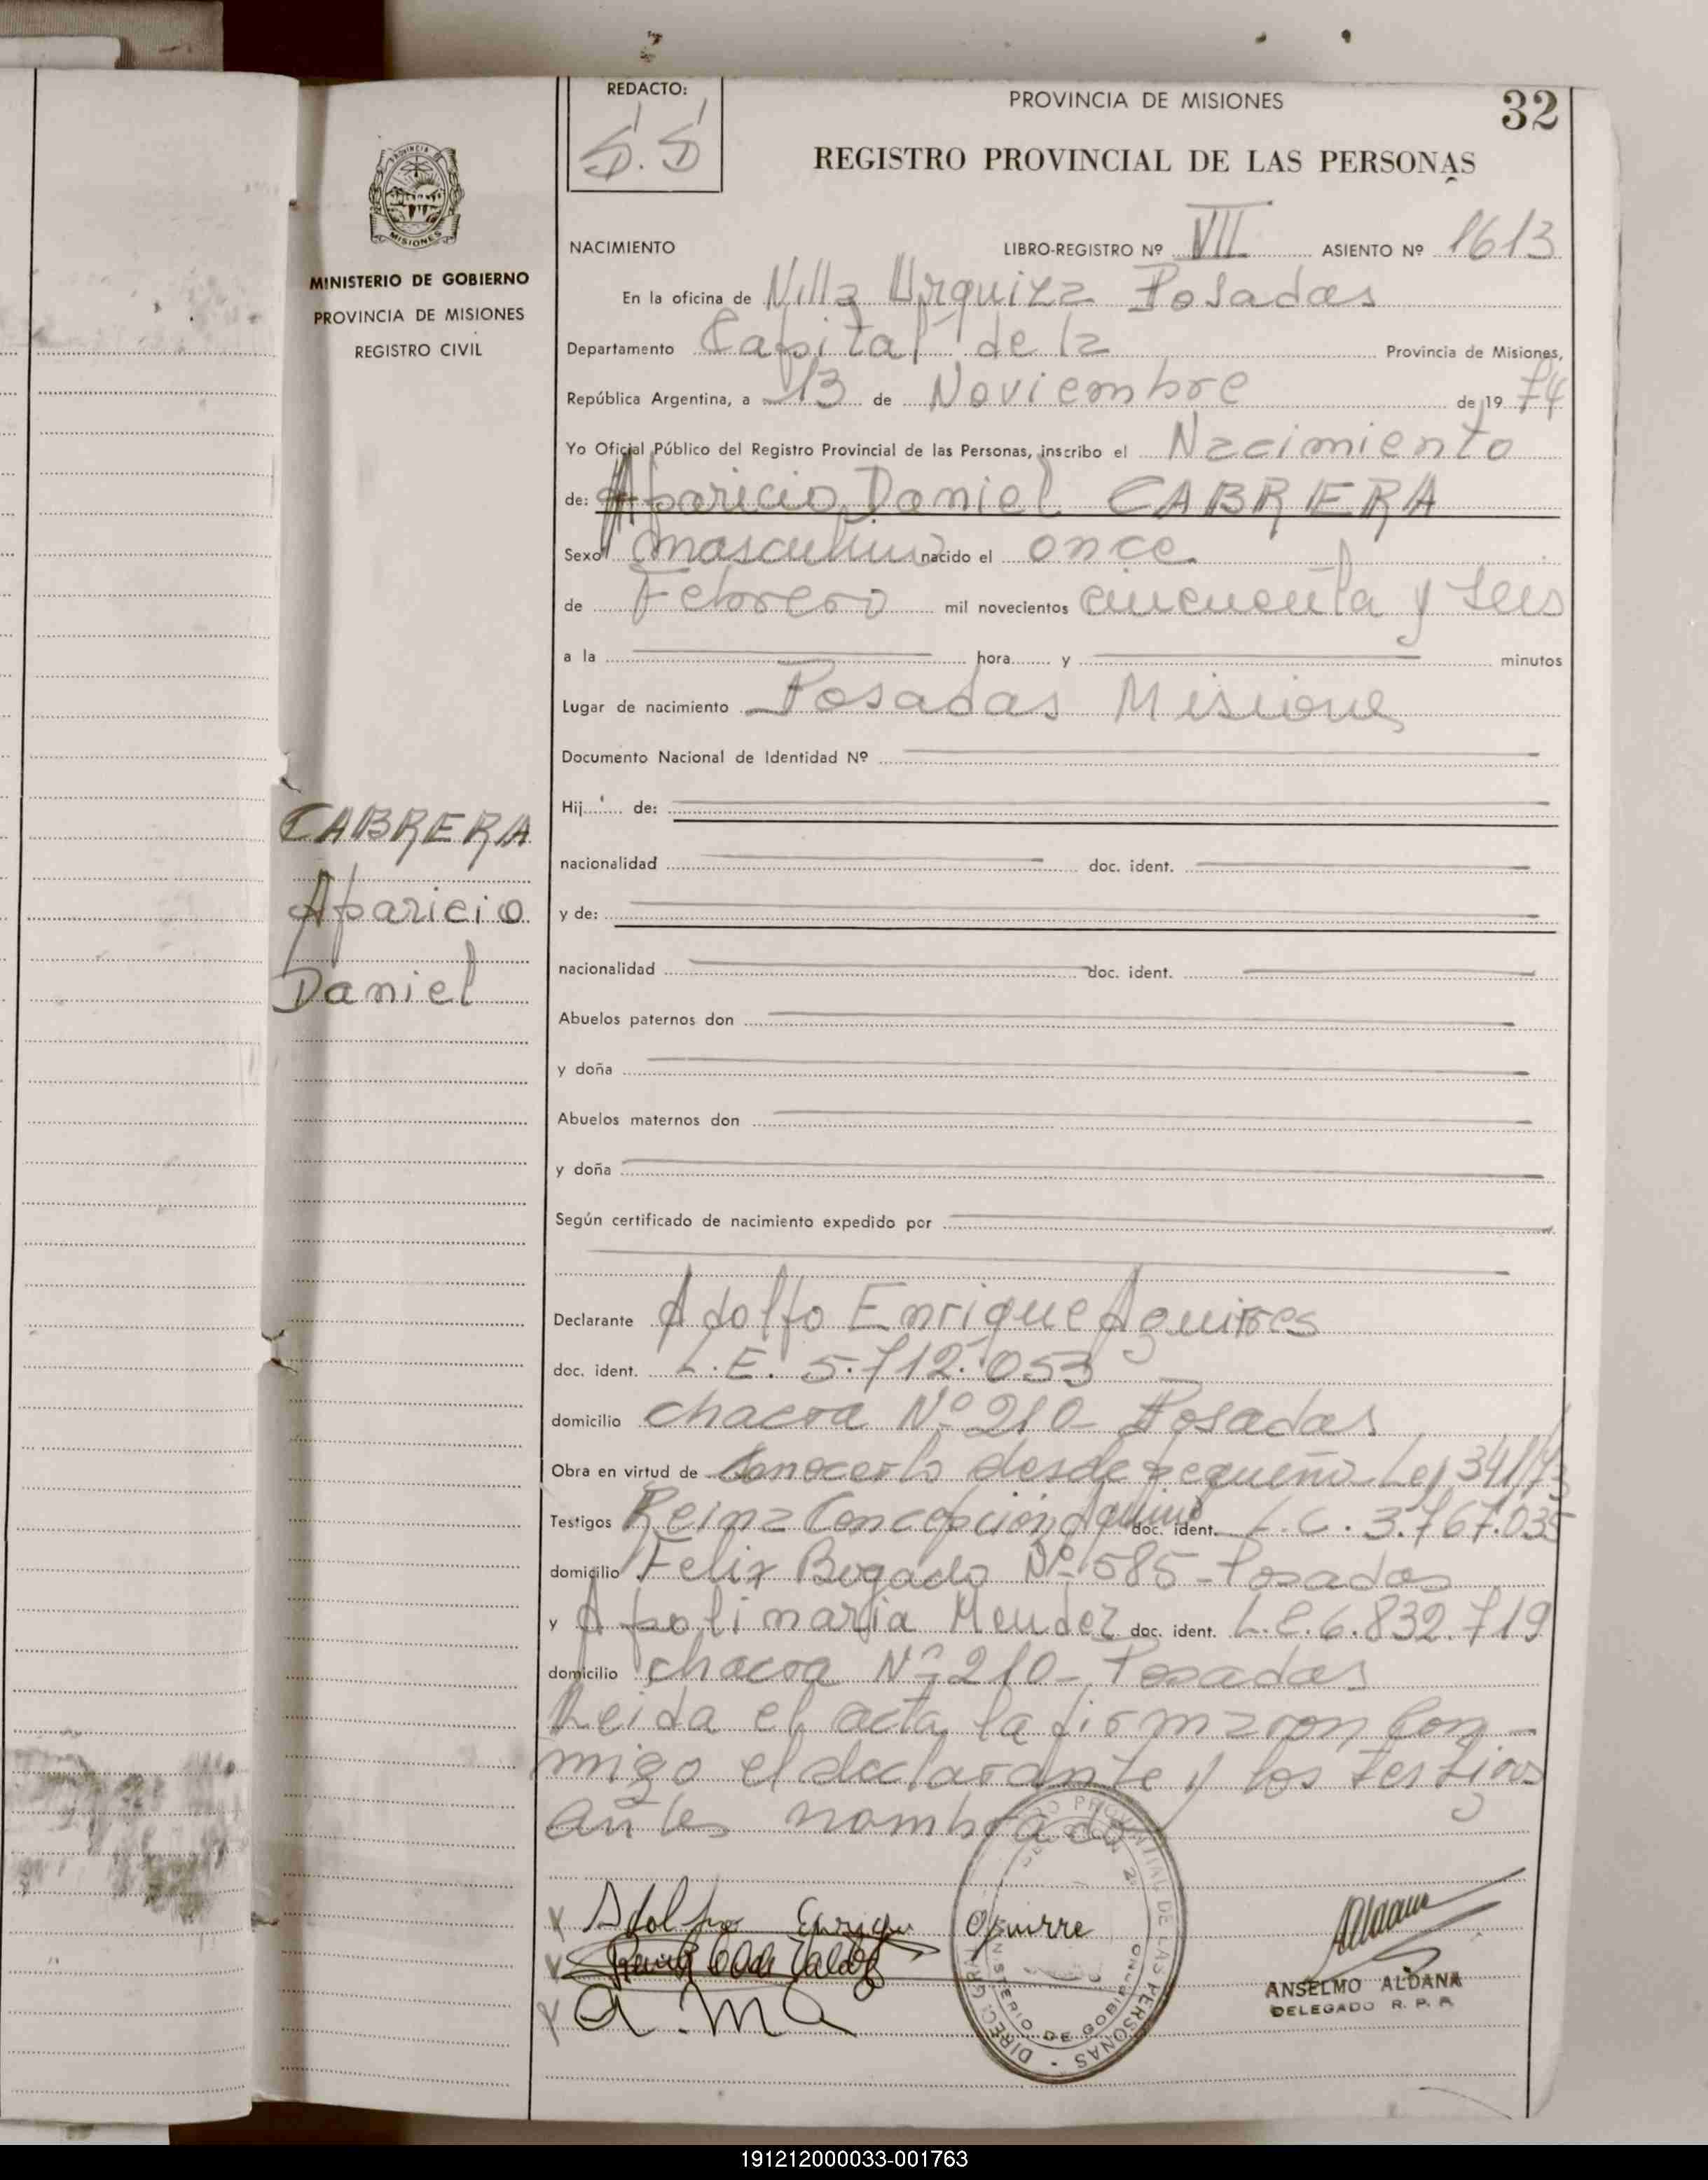 REDACTO:
S. S
PROVINCIA DE MISIONES
32
REGISTRO PROVINCIAL DE LAS PERSONAS
MISIONES
MINISTERIO DE GOBIERNO
PROVINCIA DE MISIONES
REGISTRO CIVIL
NACIMIENTO LIBRO-REGISTRO Nº VII ASIENTO Nº 1613
En la oficina de Villa Urquiza Posadas
Departamento Capital de la Provincia de Misiones,
República Argentina, a 13 de Noviembre de 19 74
Yo Oficial Público del Registro Provincial de las Personas, inscribo el Nacimiento
de: Aparicio Daniel CABRERA
Sexo masculino nacido el once
de Febrero mil novecientos cincuenta y seis
a la hora y minutos
Lugar de nacimiento Posadas Misiones
Documento Nacional de Identidad Nº
Hij de:
CABRERA
Aparicio
Daniel
nacionalidad doc. ident.
y de:
nacionalidad doc. ident.
Abuelos paternos don
y doña
Abuelos maternos don
y doña
Según certificado de nacimiento expedido por
Declarante Adolfo Enrique Aguirres
doc. ident. L.E. 5.712.053
domicilio chacra Nº 210 Posadas
Obra en virtud de conocerlo desde pequeño Ley 341/73
Testigos Reina Concepción Aquino doc. ident. L.C. 3.767.035
domicilio Felix Bogado Nº 585 - Posadas
y Apolinaria Mendez doc. ident. L.E. 6.832.719
domicilio chacra Nº 210 - Posadas
Leida el acta la firmaron con-
migo el declarante y los testigos
antes nombrado
Adolfo Enrique Aguirre
A. M
ANSELMO ALDANA
DELEGADO R. P. P.
191212000033-001763